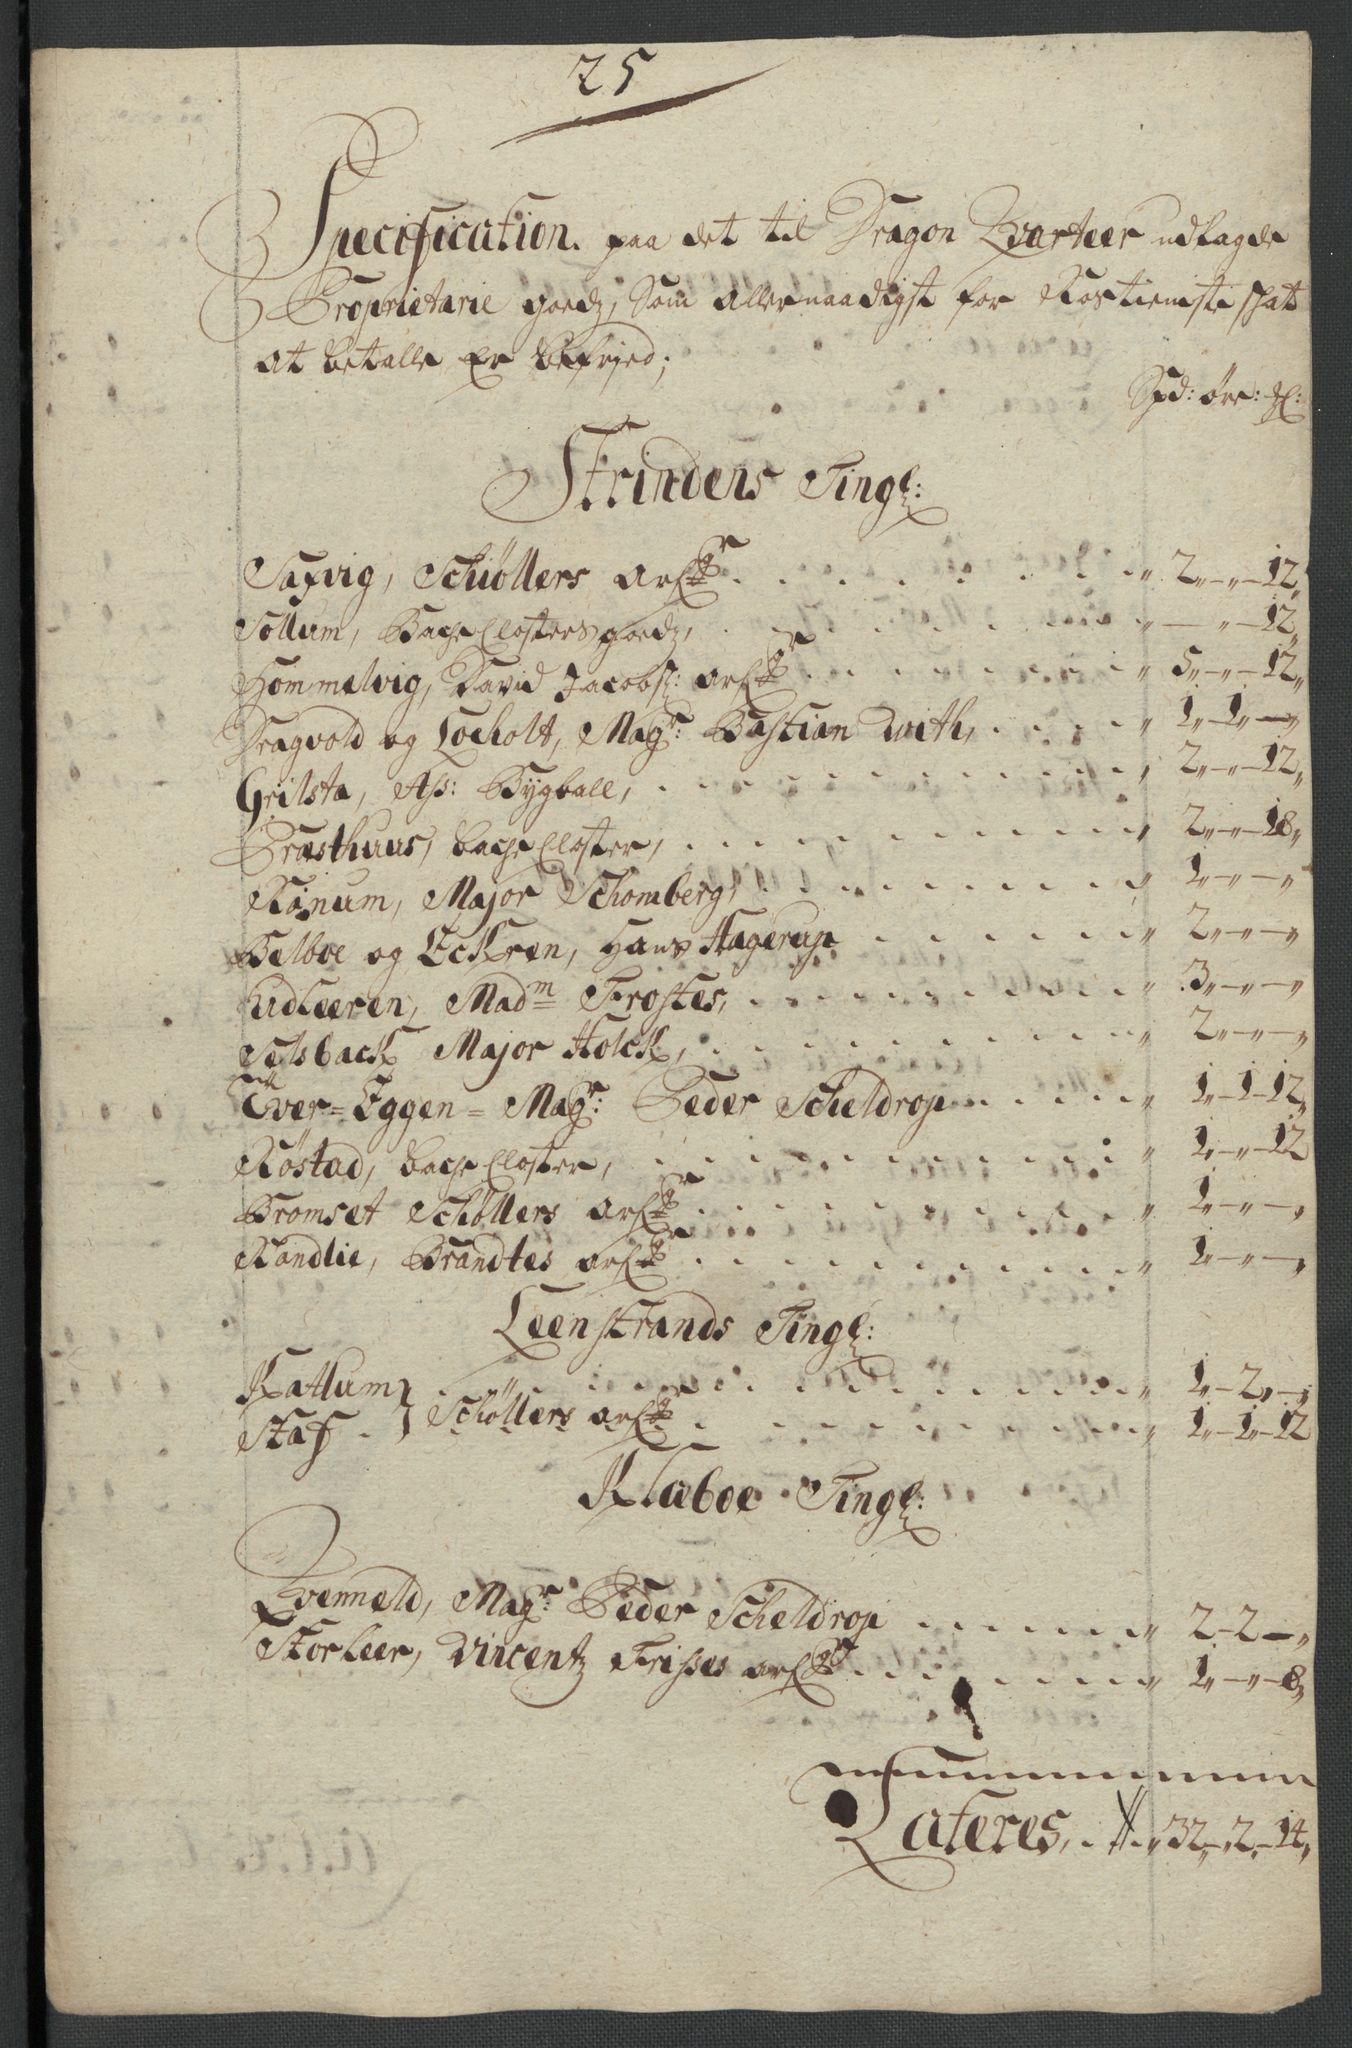 25
Specification. paa det til Dragon Qvarteer udlagde
Proprietarie goedz, Som allernaadigst for Rostieniste shat
at betalle Er befrjed;
Spd: øre: 
Strindens Tingl:
Saxvig, Schiöllers arf . . . . . . . . „ 2„-„-12„
Sollum, Bache Closters goedz, . . . . . . . . „ -„-12„
Hommelvig, David Jacobs: arf . . . . . . . . „ 5„-„-12„
Dragvold og Locholt, Magr: Bastian With, . . . . „ 1„-1„-„
Grilsta, Ass: Bygball, . . . . . . . . „ 2„-„-12„
Præsthuus, Bache Closter, . . . . . . . . „ 2„-„-18„
Ranum, Major Schomberg, . . . . . . . . „ 1„-„-„
Belboe og Eckren, Hans Hagerup . . . . . . „ 2„-„-„
Udleeren, Madm Frostes, . . . . . . . . „ 3„-„-„
Selsback Major Holck, . . . . . . . . „ 2„-„-„
Över=Eggen= Magr: Peder Scheldrop . . . . „ 1-1-12„
Röstad, Bache Closter, . . . . . . . . „ 1„-„-12
Bromset Schöllers arf . . . . . . . . „ 1„-„-„
Randlie, Brandtes arf . . . . . . . . „ 1„-„-„
Leenstrands Tingl:
Kattum } . . . . . . . . „ 1-2„-„
Staf . } Schöllers arf . . . . . . „ 1„-1„-12
Klæboe Tingl:
Qvenneld, Magr: Peder Scheldrop . . . . . . „ 2-2-„
Storleer, Vincentz Frises arf . . . . . . „ 1„-„-8„
Lateres, . . „ 32„-2„-14„